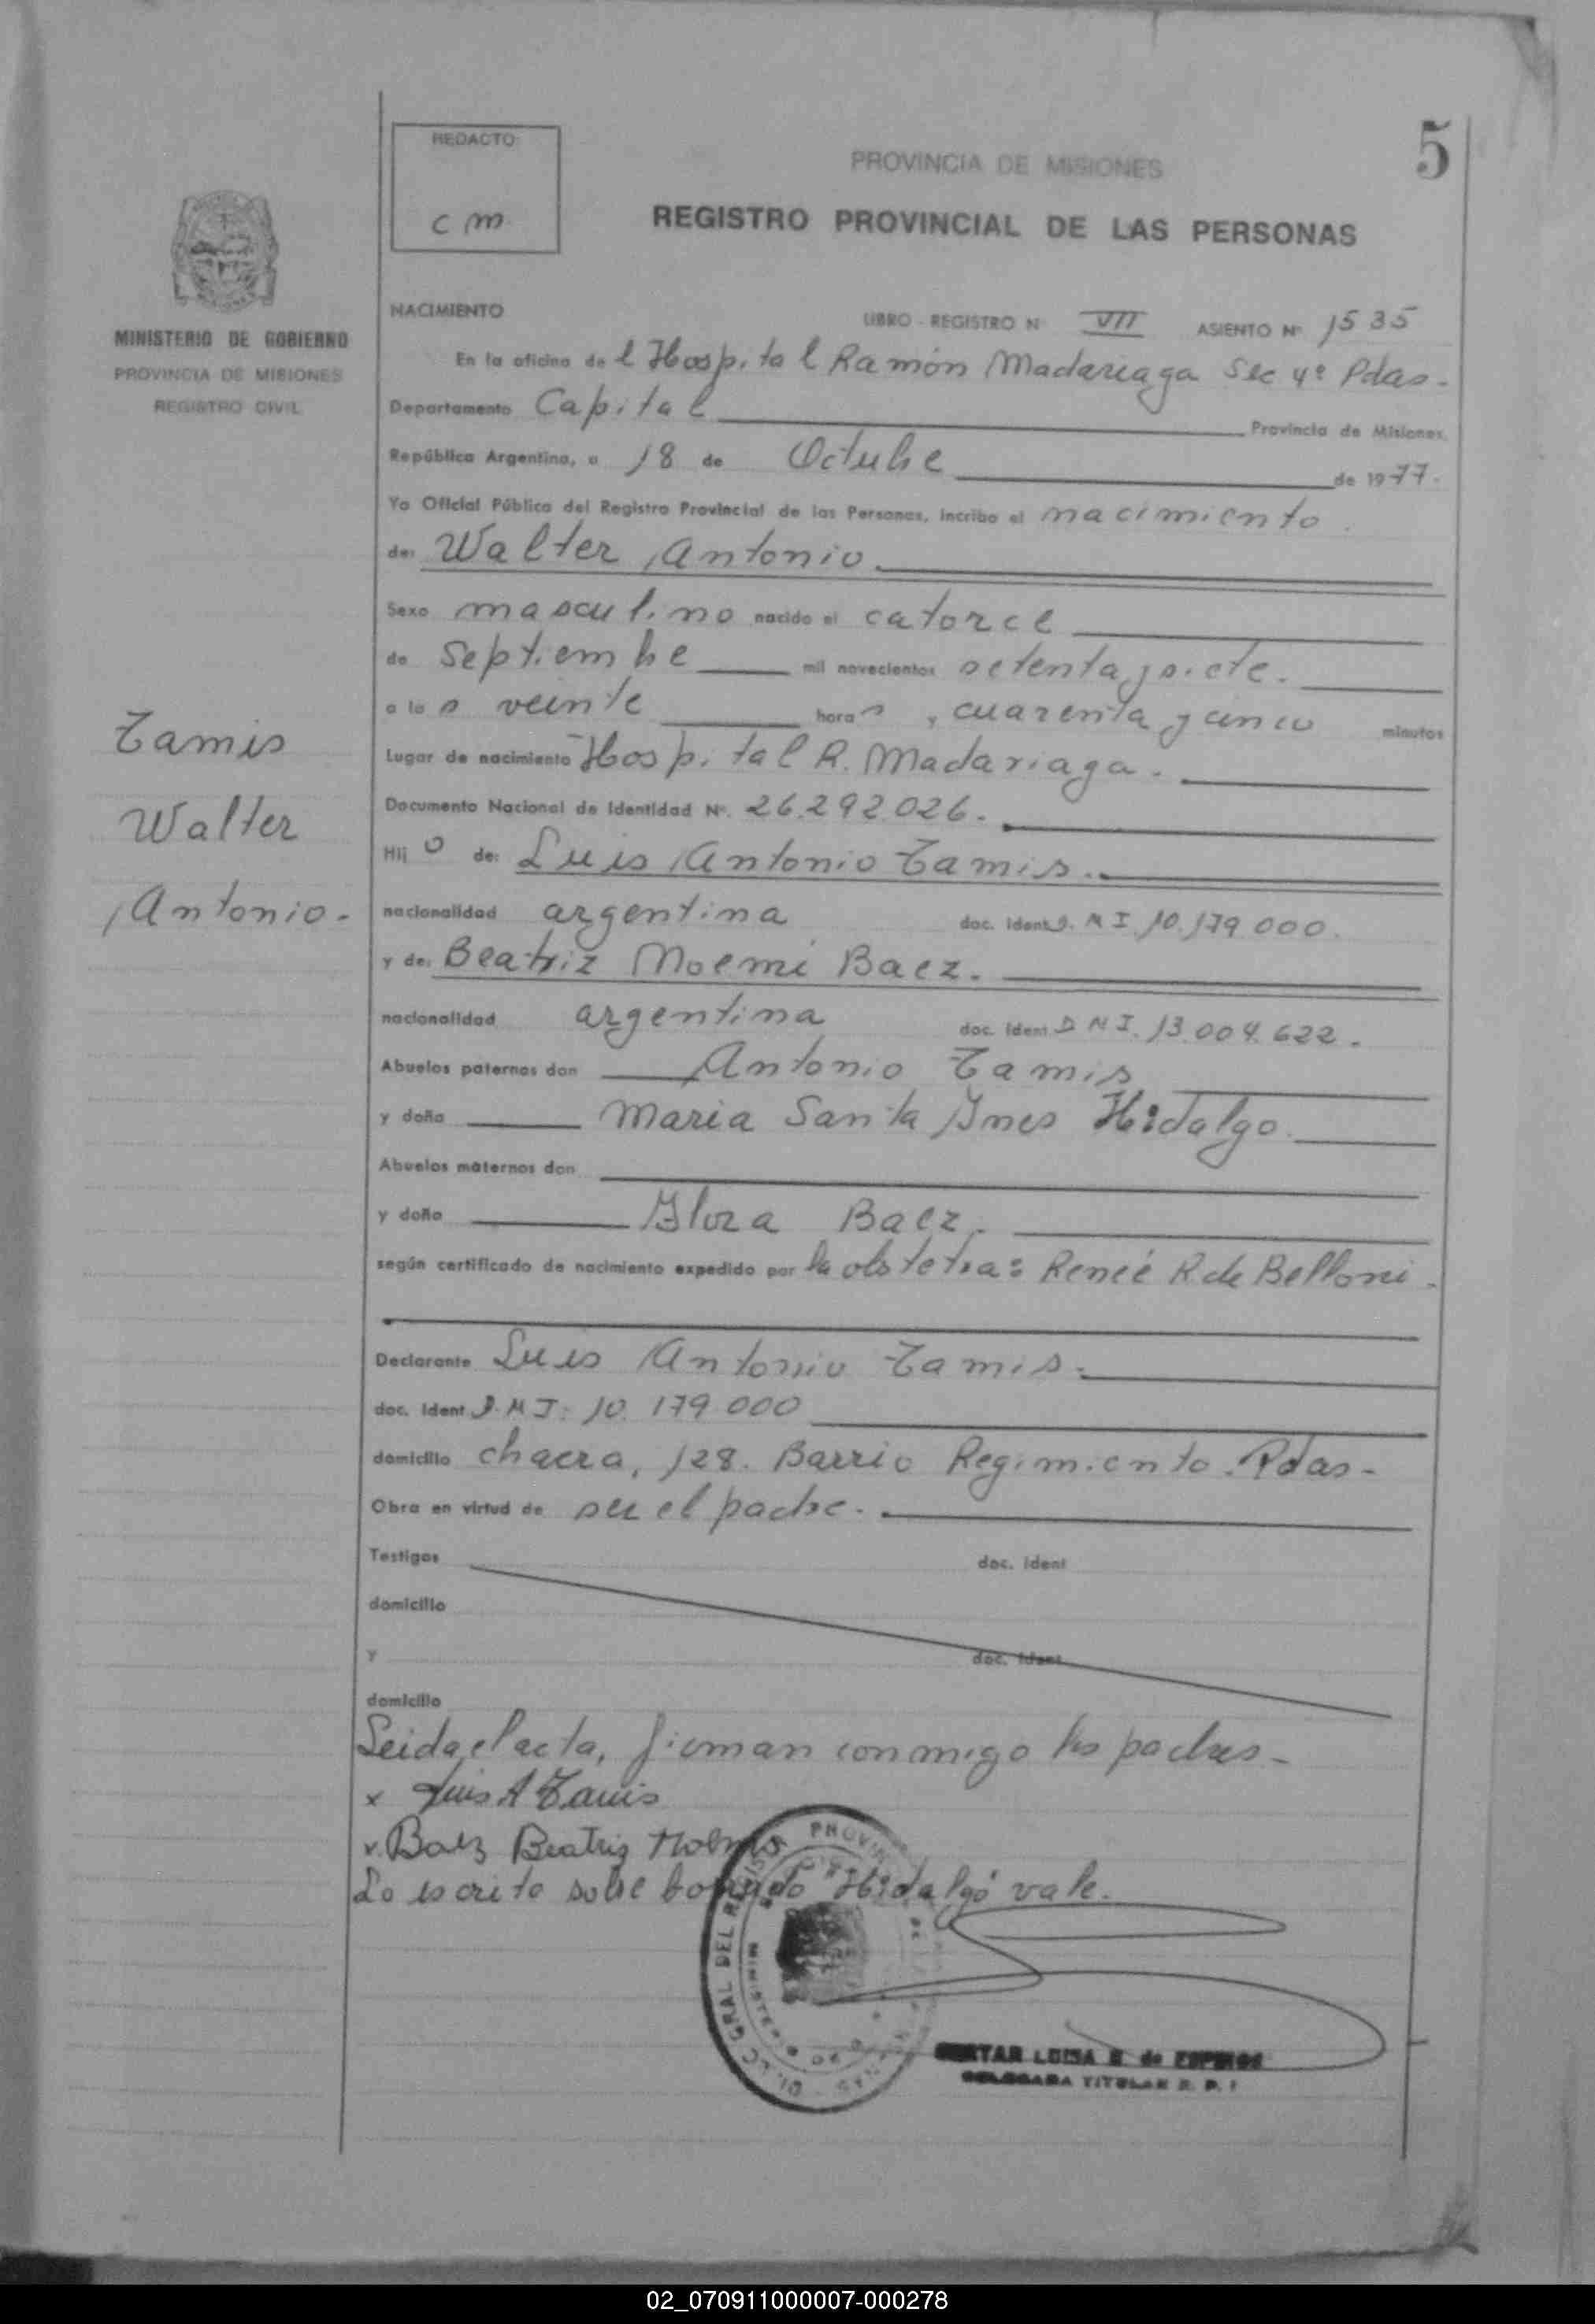 5
REDACTO
c m
PROVINCIA DE MISIONES
REGISTRO PROVINCIAL DE LAS PERSONAS
MINISTERIO DE GOBIERNO
PROVINCIA DE MISIONES
REGISTRO CIVIL
NACIMIENTO
LIBRO - REGISTRO N° VII ASIENTO N° 1535
En la oficina de l Hospital Ramón Madariaga Sec 4ª Pdas.
Departamento Capital Provincia de Misiones,
República Argentina, a 18 de Octubre de 1977.
Yo Oficial Público del Registro Provincial de las Personas, incribo el nacimiento.
de: Walter Antonio.
Sexo masculino nacido el catorce
de Septiembre mil novecientos setenta y siete.
a las veinte horas y cuarenta y cinco minutos
Lugar de nacimiento Hospital R. Madariaga.
Documento Nacional de Identidad N°. 26.292.026.
Hijo de: Luis Antonio Tamis.
nacionalidad argentina doc. Ident D. N I. 10.179 000.
y de: Beatriz Noemi Baez.
nacionalidad argentina doc. Ident D N I. 13.004.622.
Abuelos paternos don Antonio Tamis
y doña Maria Santa Ynes Hidalgo.
Abuelos maternos don
y doña Flora Baez.
según certificado de nacimiento expedido por la obstetra: Reneé R. de Belloni.
Declarante Luis Antonio Tamis.
doc. Ident D. N I: 10. 179 000
domicilio chacra, 128. Barrio Regimiento. Pdas-
Obra en virtud de ser el padre.
Testigos doc. Ident
domicilio
y doc. Ident
domicilio
Tamis
Walter
Antonio.-
Leida el acta, firman conmigo los padres-
x Luis A Tamis
x. Baez Beatriz Noemi
Lo escrito sobre borrado "Hidalgo" vale.
PROVIN
GRAL DEL REGIST
LUISA de
TITULAR
02_070911000007-000278